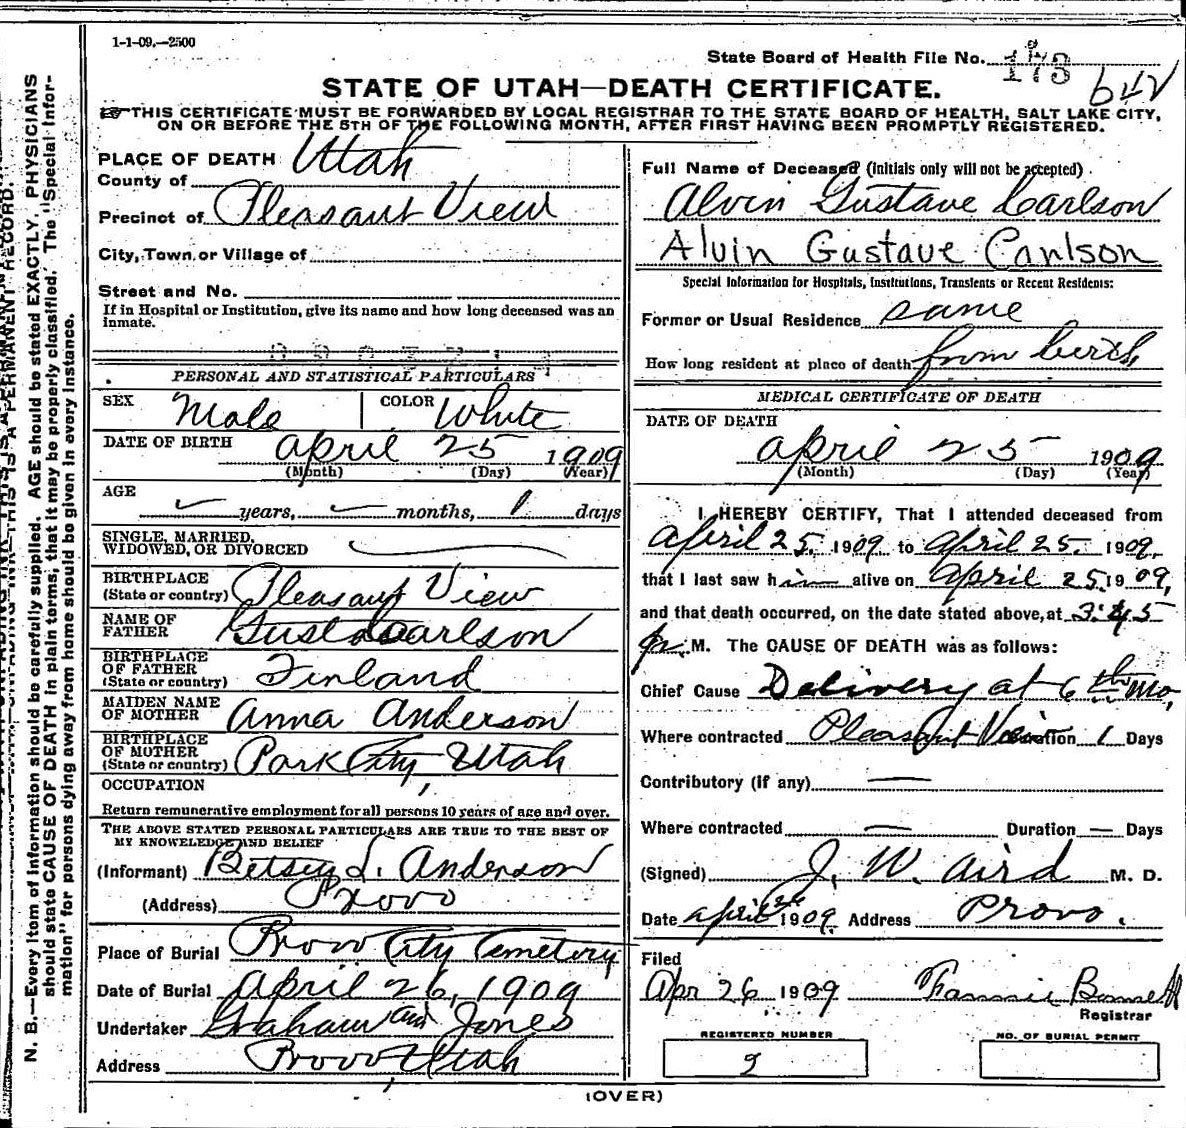 1-1-09.—2500
State Board of Health File No. 173 642
STATE OF UTAH—DEATH CERTIFICATE.
THIS CERTIFICATE MUST BE FORWARDED BY LOCAL REGISTRAR TO THE STATE BOARD OF HEALTH, SALT LAKE CITY,
ON OR BEFORE THE 5TH OF THE FOLLOWING MONTH, AFTER FIRST HAVING BEEN PROMPTLY REGISTERED.
PLACE OF DEATH
County of Utah
Precinct of Pleasant View
City, Town or Village of
Street and No.
If in Hospital or Institution, give its name and how long deceased was an
inmate.
PERSONAL AND STATISTICAL PARTICULARS
SEX Male COLOR White
DATE OF BIRTH April 25 1909
(Month) (Day) (Year)
AGE
years, months, 1 days
SINGLE, MARRIED,
WIDOWED, OR DIVORCED
BIRTHPLACE
(State or country) Pleasant View
NAME OF
FATHER Gust Carlson
BIRTHPLACE
OF FATHER
(State or country) Finland
MAIDEN NAME
OF MOTHER Anna Anderson
BIRTHPLACE
OF MOTHER
(State or country) Park City, Utah
OCCUPATION
Return remunerative employment for all persons 10 years of age and over.
THE ABOVE STATED PERSONAL PARTICULARS ARE TRUE TO THE BEST OF
MY KNOWLEDGE AND BELIEF
(Informant) Betsey L. Anderson
(Address) Provo
Place of Burial Provo City Cemetery
Date of Burial April 26, 1909
Undertaker Graham and Jones
Address Provo, Utah
Full Name of Deceased (Initials only will not be accepted)
Alvin Gustave Carlson
Alvin Gustave Carlson
Special Information for Hospitals, Institutions, Transients or Recent Residents:
Former or Usual Residence same
How long resident at place of death from birth
MEDICAL CERTIFICATE OF DEATH
DATE OF DEATH
April 25 1909
(Month) (Day) (Year)
I HEREBY CERTIFY, That I attended deceased from
April 25. 1909 to April 25. 1909,
that I last saw him alive on April 25. 1909,
and that death occurred, on the date stated above, at 3:45
P. M. The CAUSE OF DEATH was as follows:
Chief Cause Delivery at 6th Mo,
Where contracted Pleasant View Duration 1 Days
Contributory (if any) —
Where contracted — Duration — Days
(Signed) J. W. Aird M. D.
Date April 1909 Address Provo.
Filed
Apr 26 1909 Fannie Bonnett
Registrar
REGISTERED NUMBER
9
NO. OF BURIAL PERMIT
(OVER)
N. B.—Every item of information should be carefully supplied. AGE should be stated EXACTLY. PHYSICIANS
should state CAUSE OF DEATH in plain terms, that it may be properly classified. The "Special Infor-
mation" for persons dying away from home should be given in every instance.
THIS IS A PERMANENT RECORD.